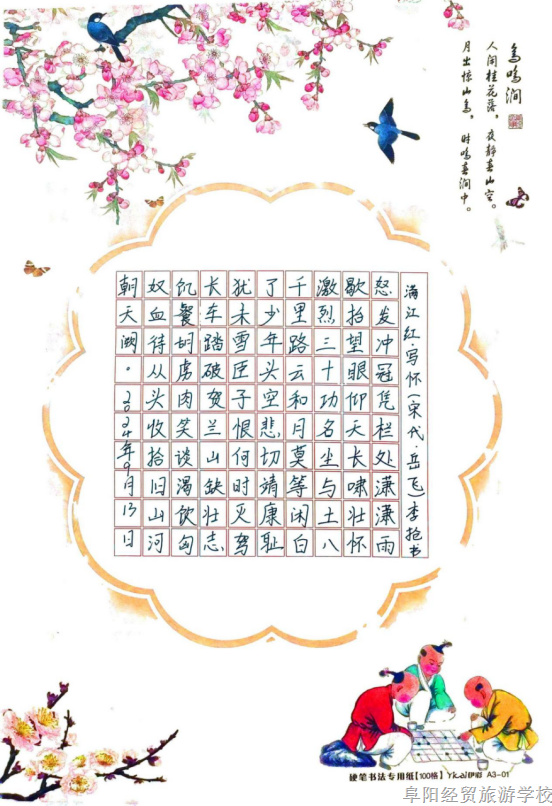 鸟鸣涧
人闲桂花落，夜静春山空。
月出惊山鸟，时鸣春涧中。
满江红·写怀(宋代·岳飞)李抢书
怒发冲冠凭栏处潇潇雨
歇抬望眼仰天长啸壮怀
激烈三十功名坐与土八
千里路云和月莫等闲白
了少年头空悲切靖康耻
犹未雪臣子恨何时灭驾
长车踏破贺兰山缺壮志
饥餐胡虏肉笑谈渴饮匈
奴血待从头收拾旧山河
朝天阙。2024年9月13日
硬笔书法专用纸【100格】Ykai伊彩 A3-01
阜阳经贸旅游学校